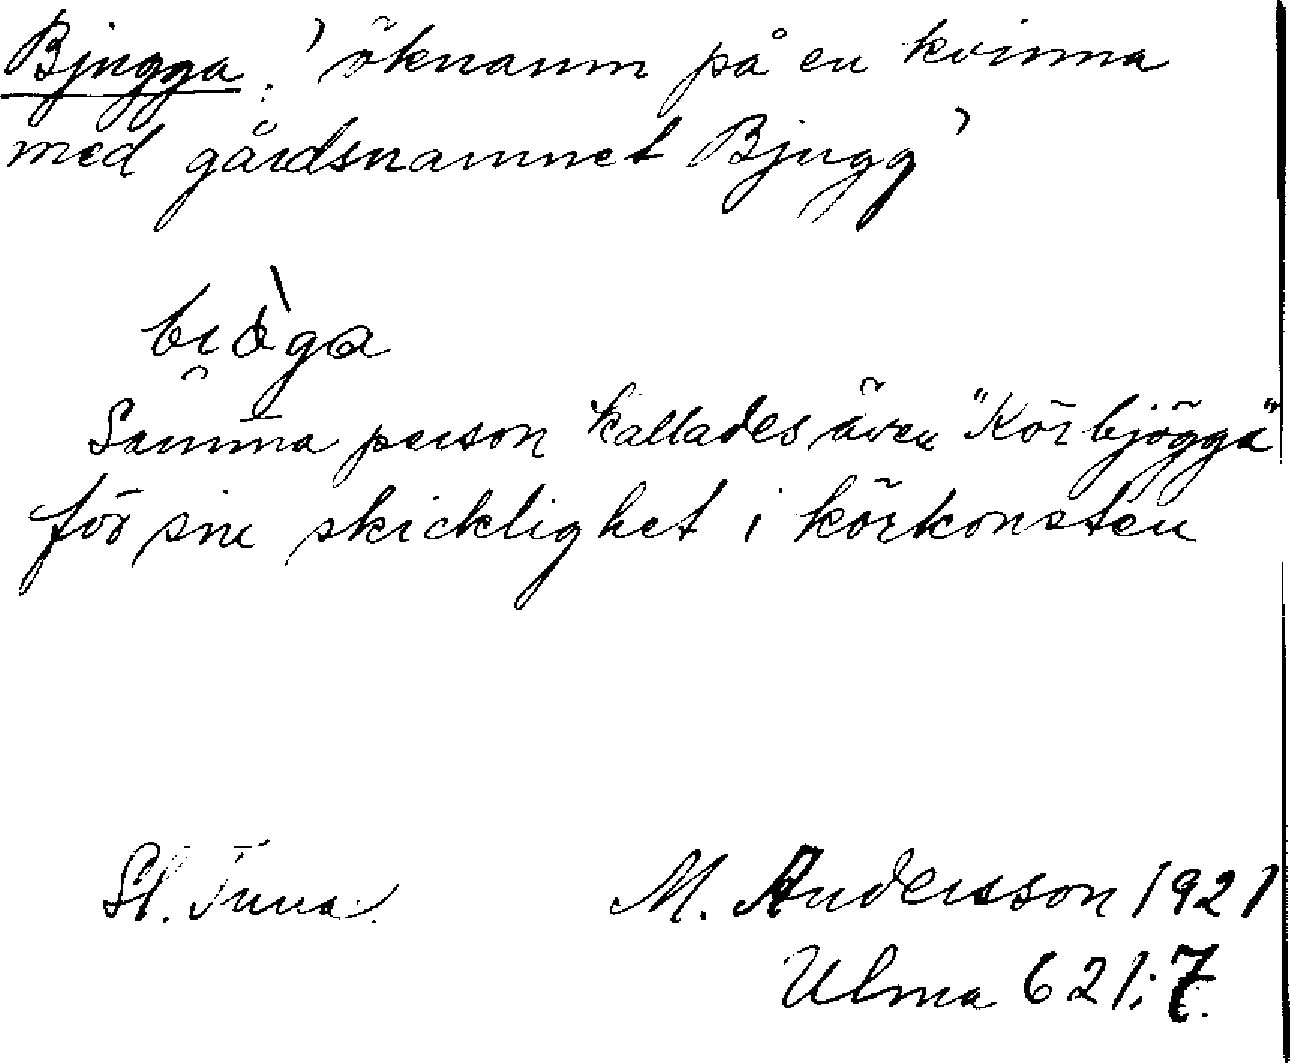 Bjugga, 'öknamn på en kvinna
med gårdsnamnet Bjugg'
Samma person kallades även "Körbjögga"
för sin skicklighet i körkonsten
St. Tuna.
M. Andersson 1921
Ulma 621:7.